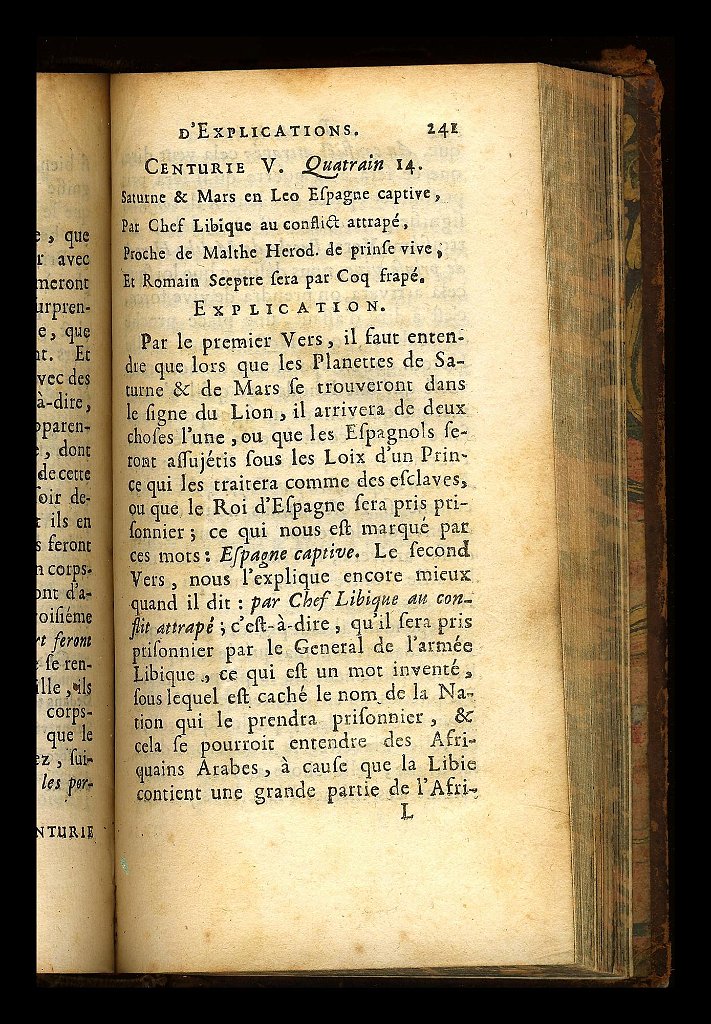 e, que
r avec
meront
urpren-
e, que
nt. Et
vec des
à-dire,
pparen-
e, dont
de cette
ſoir de-
t ils en
s feront
n corps-
ont d'a-
roiſiéme
rt feront
ſe ren-
ille, ils
corps-
que le
ez, ſui-
les por-
NTURIE
D'EXPLICATIONS. 241
CENTURIE V. Quatrain 14.
Saturne & Mars en Leo Eſpagne captive,
Par Chef Libique au conflict attrapé,
Proche de Malthe Herod. de prinſe vive,
Et Romain Sceptre ſera par Coq frapé.
EXPLICATION.
Par le premier Vers, il faut enten-
dre que lors que les Planettes de Sa-
turne & de Mars ſe trouveront dans
le ſigne du Lion, il arrivera de deux
choſes l'une, ou que les Eſpagnols ſe-
ront aſſujétis ſous les Loix d'un Prin-
ce qui les traitera comme des eſclaves,
ou que le Roi d'Eſpagne ſera pris pri-
ſonnier; ce qui nous eſt marqué par
ces mots: Eſpagne captive. Le ſecond
Vers, nous l'explique encore mieux
quand il dit: par Chef Libique au con-
flit attrapé; c'eſt-à-dire, qu'il ſera pris
priſonnier par le General de l'armée
Libique, ce qui eſt un mot inventé,
ſous lequel eſt caché le nom de la Na-
tion qui le prendra priſonnier, &
cela ſe pourroit entendre des Afri-
quains Arabes, à cauſe que la Libie
contient une grande partie de l'Afri-
L